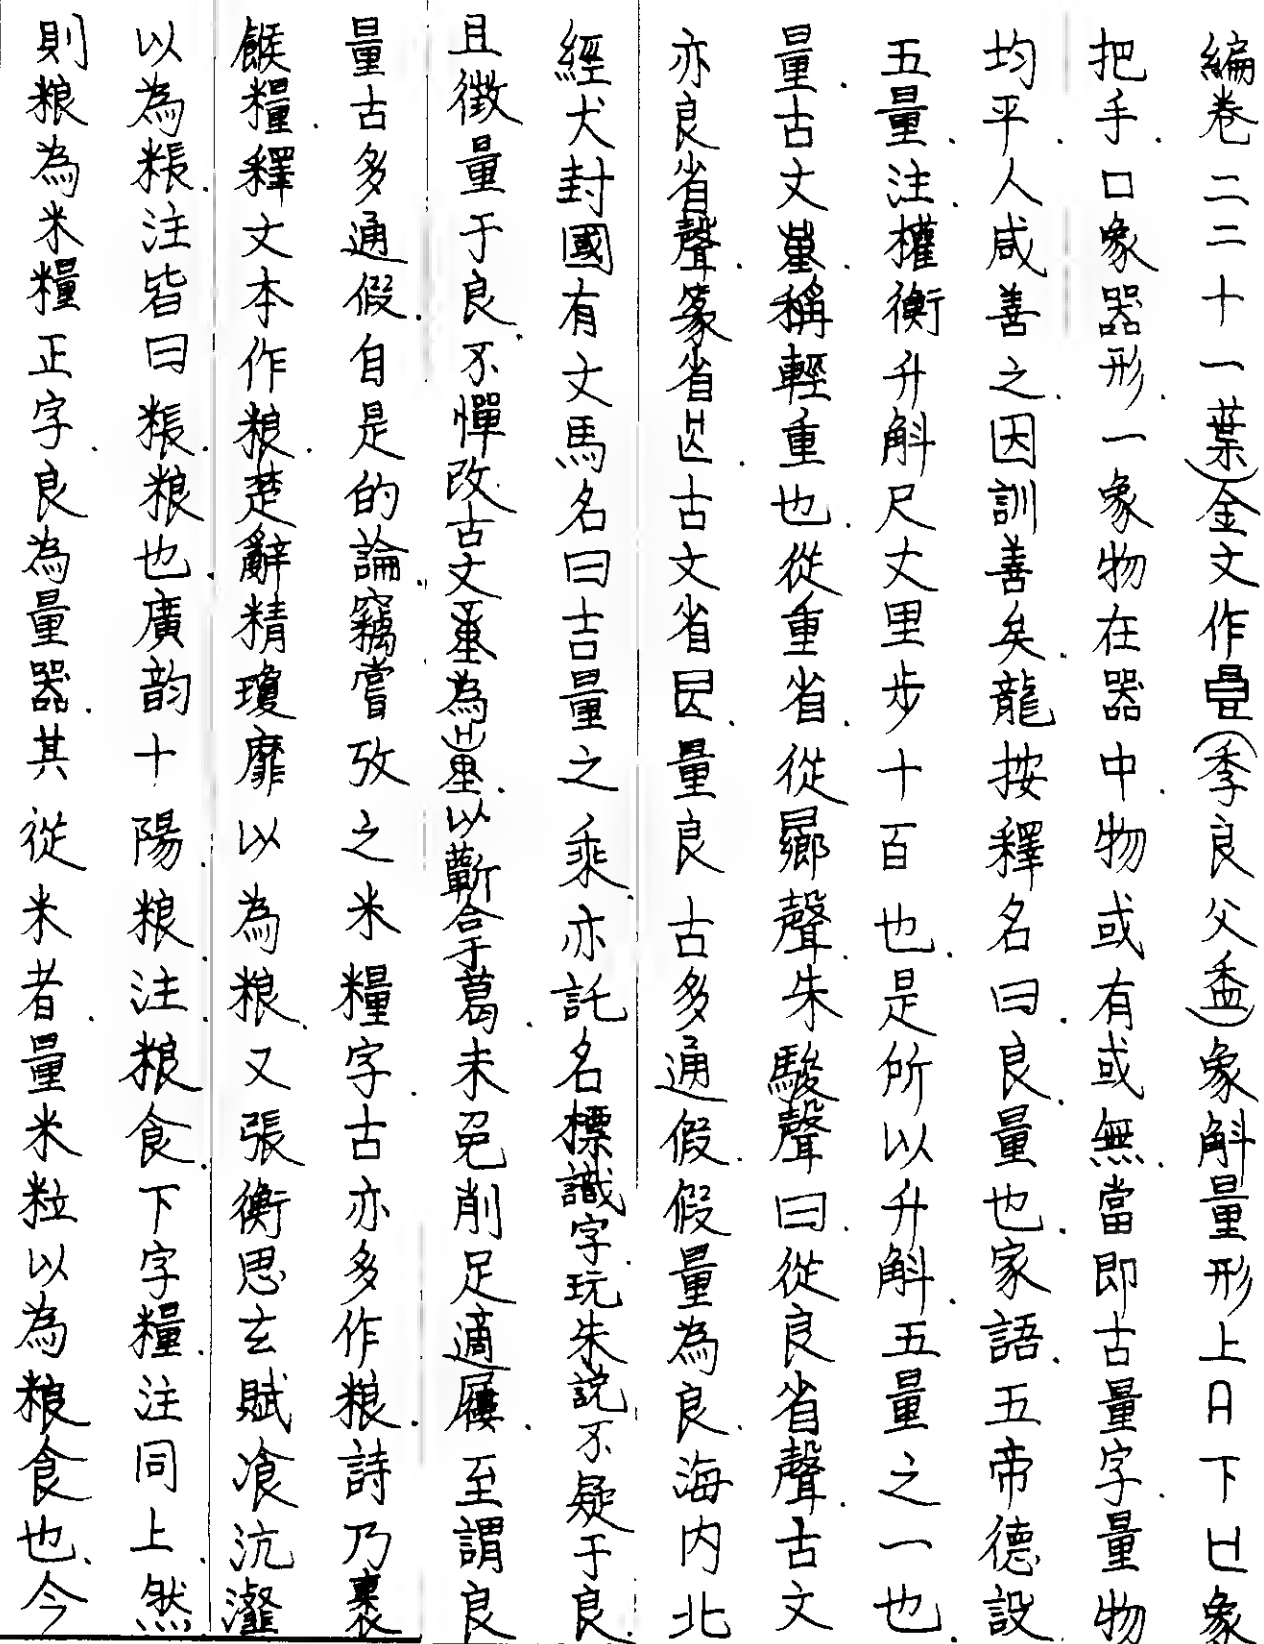 編卷二二十一葉)金文作(季良父盉)象斛量形上下象
把手.口象器形.一象物在器中.物或有或無.當即古量字.量物
均平.人咸善之.因訓善矣.龍按釋名曰.良量也.家語.五帝德設
五量.注.權衡升斛尺丈里步十百也.是所以升斛.五量之一也.
量.古文.稱輕重也.從重省.從曏聲.朱駿聲曰.從良省聲.古文
亦良省聲.篆省.古文省.量良古多通假.假量為良.海內北
經犬封國有文馬名曰吉量之乘.亦託名標識字.玩朱說不疑于良.
且徵量于良.不憚改古文為.以蘄合于葛.未免削足適屨.至謂良
量古多通假.自是的論.竊嘗攷之米糧字.古亦多作粮.詩乃裹
餱糧.釋文本作粮.楚辭精瓊靡以為粮.又張衡思玄賦飡沆瀣
以為粻.注皆曰粻.粮也.廣韵十陽.粮.注.粮食.下字糧.注同上.然
則粮為米糧正字.良為量器.其從米者.量米粒以為粮食也.今